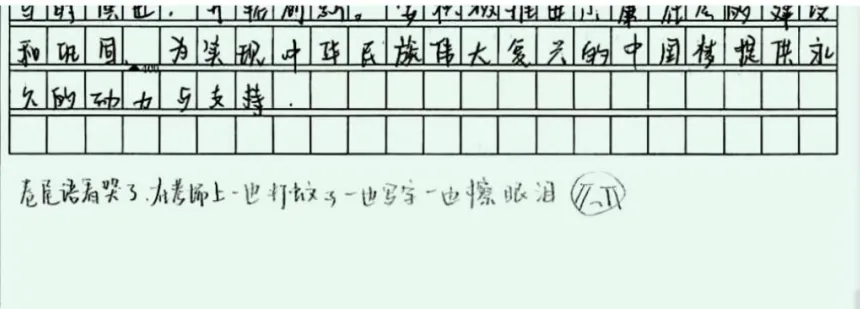 和巩固,为实现中华民族伟大复兴的中国梦提供永
久的动力与支持.
卷尾语看哭了.在考场上一边打蚊子一边写字一边擦眼泪